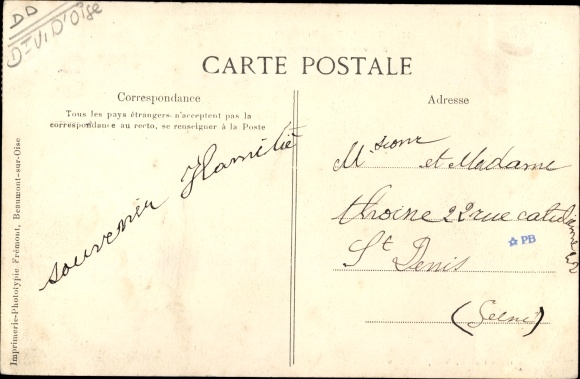 DD
Dt V1 D'Oise
CARTE POSTALE
Correspondance
Tous les pays étrangers n'acceptent pas la
correspondance au recto, se renseigner à la Poste
Adresse
souvenir Hamitié
M. sieur et Madame
throine 22 rue
St Denis
(Seine)
PB
Imprimerie-Phototypie Frémont, Beaumont-sur-Oise